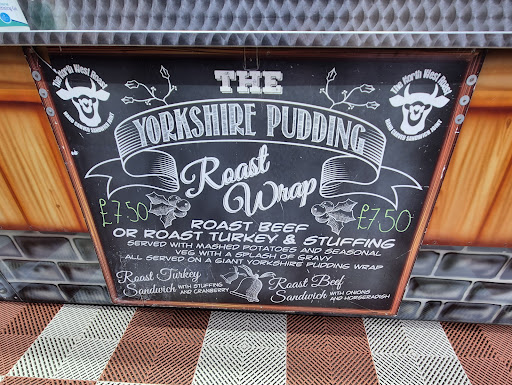 The North West Roast
The North West Roast
THE
YORKSHIRE PUDDING
Roast
Wrap
£7.50
£7.50
ROAST BEEF
OR ROAST TURKEY & STUFFING
SERVED WITH MASHED POTATOES AND SEASONAL
VEG WITH A SPLASH OF GRAVY
ALL SERVED ON A GIANT YORKSHIRE PUDDING WRAP
Roast Turkey
Sandwich WITH STUFFING
AND CRANBERRY
Roast Beef
Sandwich WITH ONIONS
AND HORSERADISH